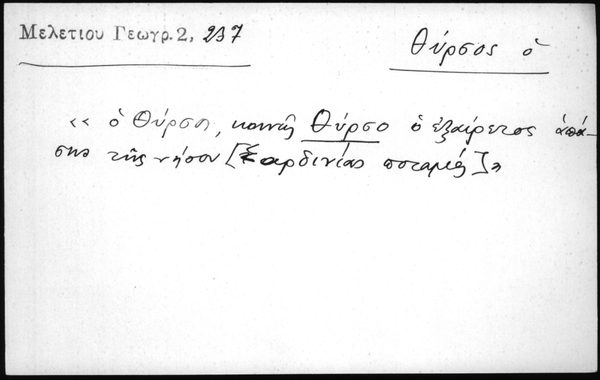 Μελετίου Γεωγρ. 2, 237
Θύρσος ὁ
«ὁ Θύρση, κοινῶς Θύρσο ὁ ἐξαίρετος ἁπά-
σης τῆς νήσου [Σαρδινίας ποταμός]»